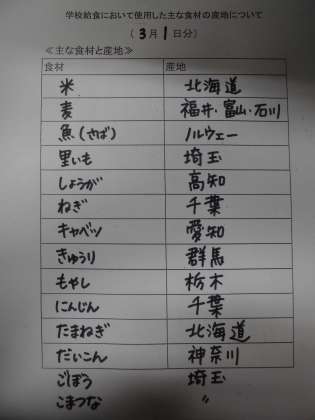 学校給食において使用した主な食材の産地について
（ 3月 1日分）
≪主な食材と産地≫
食材 産地
米 北海道
麦 福井・富山・石川
魚(さば) ノルウェー
里いも 埼玉
しょうが 高知
ねぎ 千葉
キャベツ 愛知
きゅうり 群馬
もやし 栃木
にんじん 千葉
たまねぎ 北海道
だいこん 神奈川
ごぼう 埼玉
こまつな 〃